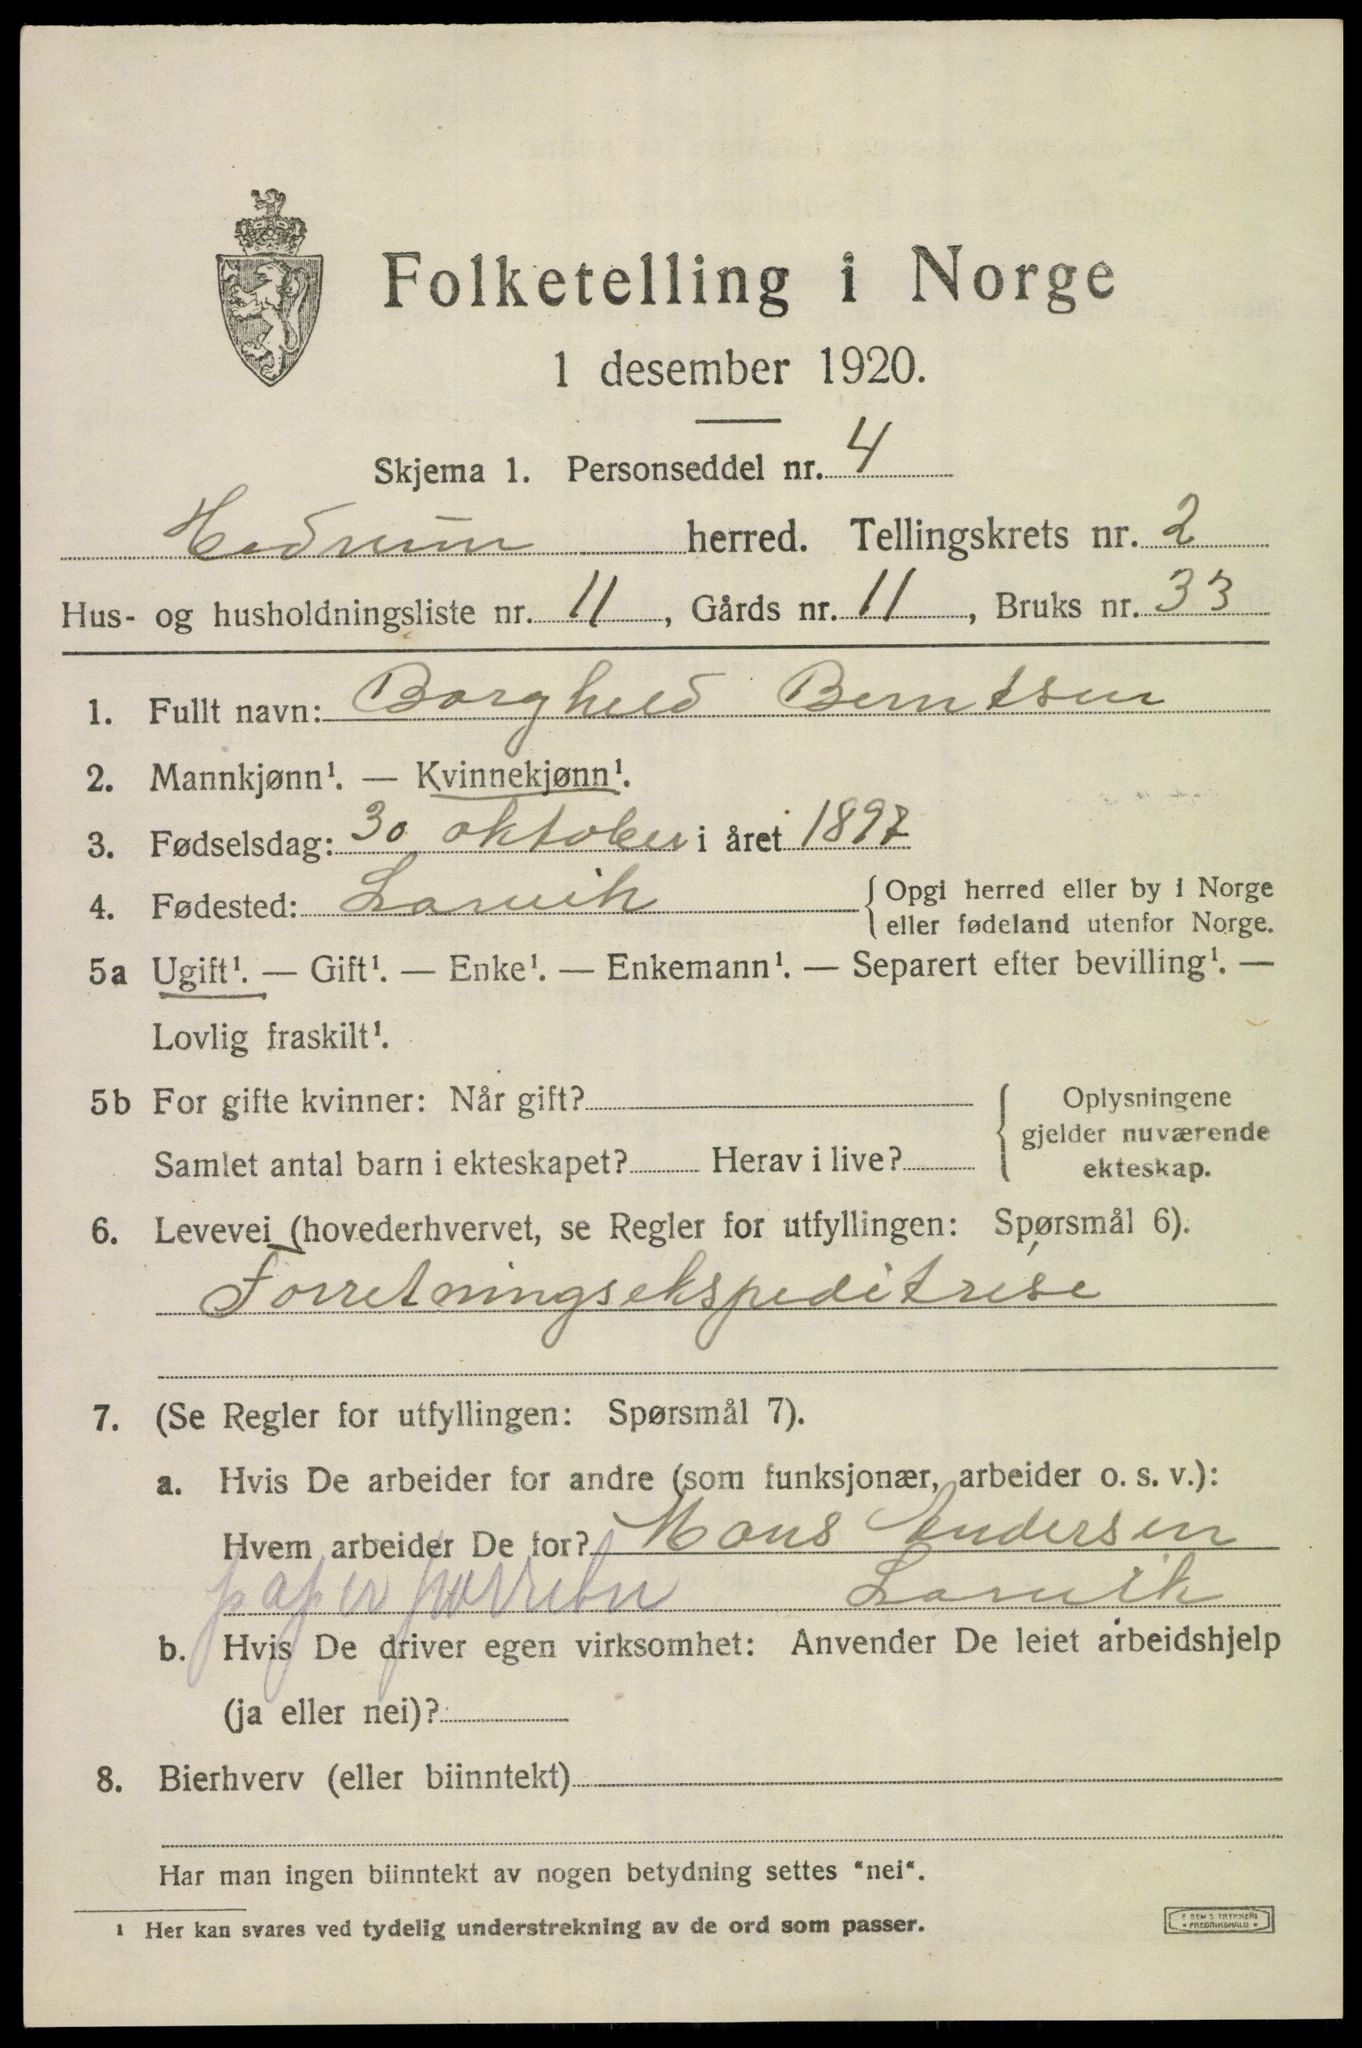 Folketelling i Norge
1 desember 1920.
Skjema 1. Personseddel nr. 4
Hedrum herred. Tellingskrets nr. 2
Hus- og husholdningsliste nr. 11, Gårds nr. 11, Bruks nr. 33
1. Fullt navn: Borghild Berntsen
2. Mannkjønn¹. — Kvinnekjønn¹.
3. Fødselsdag: 30 oktober i året 1897
4. Fødested: Larvik { Opgi herred eller by i Norge
eller fødeland utenfor Norge.
5a Ugift¹. — Gift¹. — Enke¹. — Enkemann¹. — Separert efter bevilling¹. —
Lovlig fraskilt¹.
5b For gifte kvinner: Når gift? { Oplysningene
gjelder nuværende
Samlet antal barn i ekteskapet? Herav i live?
ekteskap.
6. Levevei (hovederhvervet, se Regler for utfyllingen: Spørsmål 6).
Forretningsekspeditrise
7. (Se Regler for utfyllingen: Spørsmål 7).
a. Hvis De arbeider for andre (som funksjonær, arbeider o. s. v.):
Hvem arbeider De for? Hans Andersen
papirforretn Larvik
b. Hvis De driver egen virksomhet: Anvender De leiet arbeidshjelp
(ja eller nei)?
8. Bierhverv (eller biinntekt)
Har man ingen biinntekt av nogen betydning settes "nei".
¹ Her kan svares ved tydelig understrekning av de ord som passer.